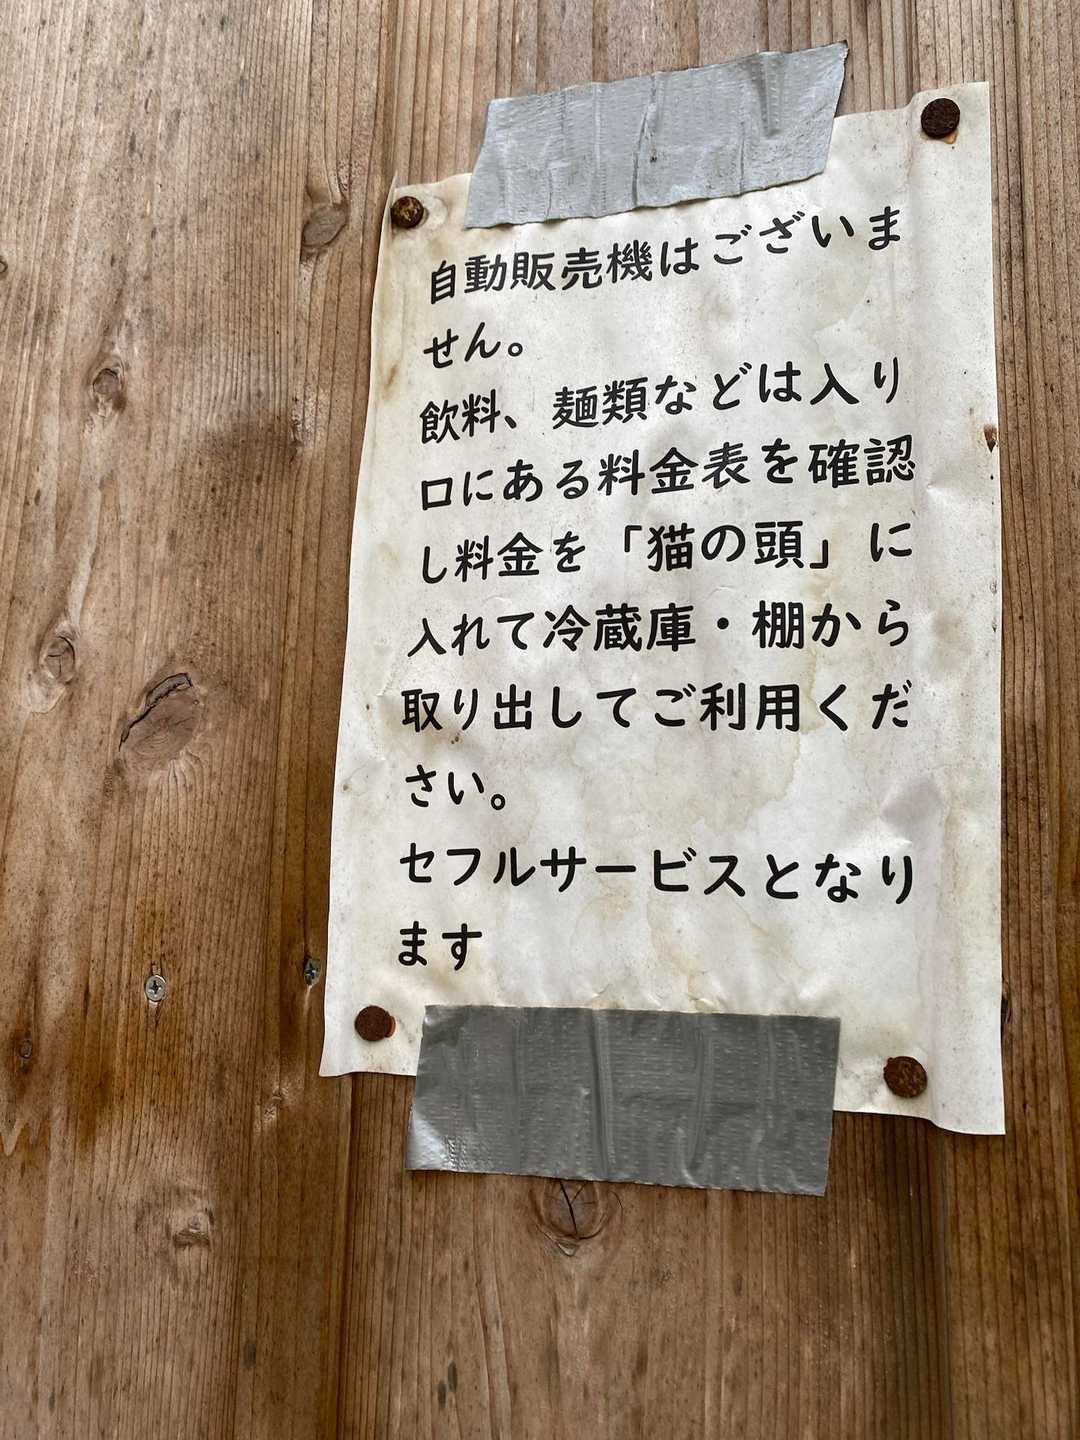 自動販売機はございま
せん。
飲料、麺類などは入り
口にある料金表を確認
し料金を「猫の頭」に
入れて冷蔵庫・棚から
取り出してご利用くだ
さい。
セフルサービスとなり
ます